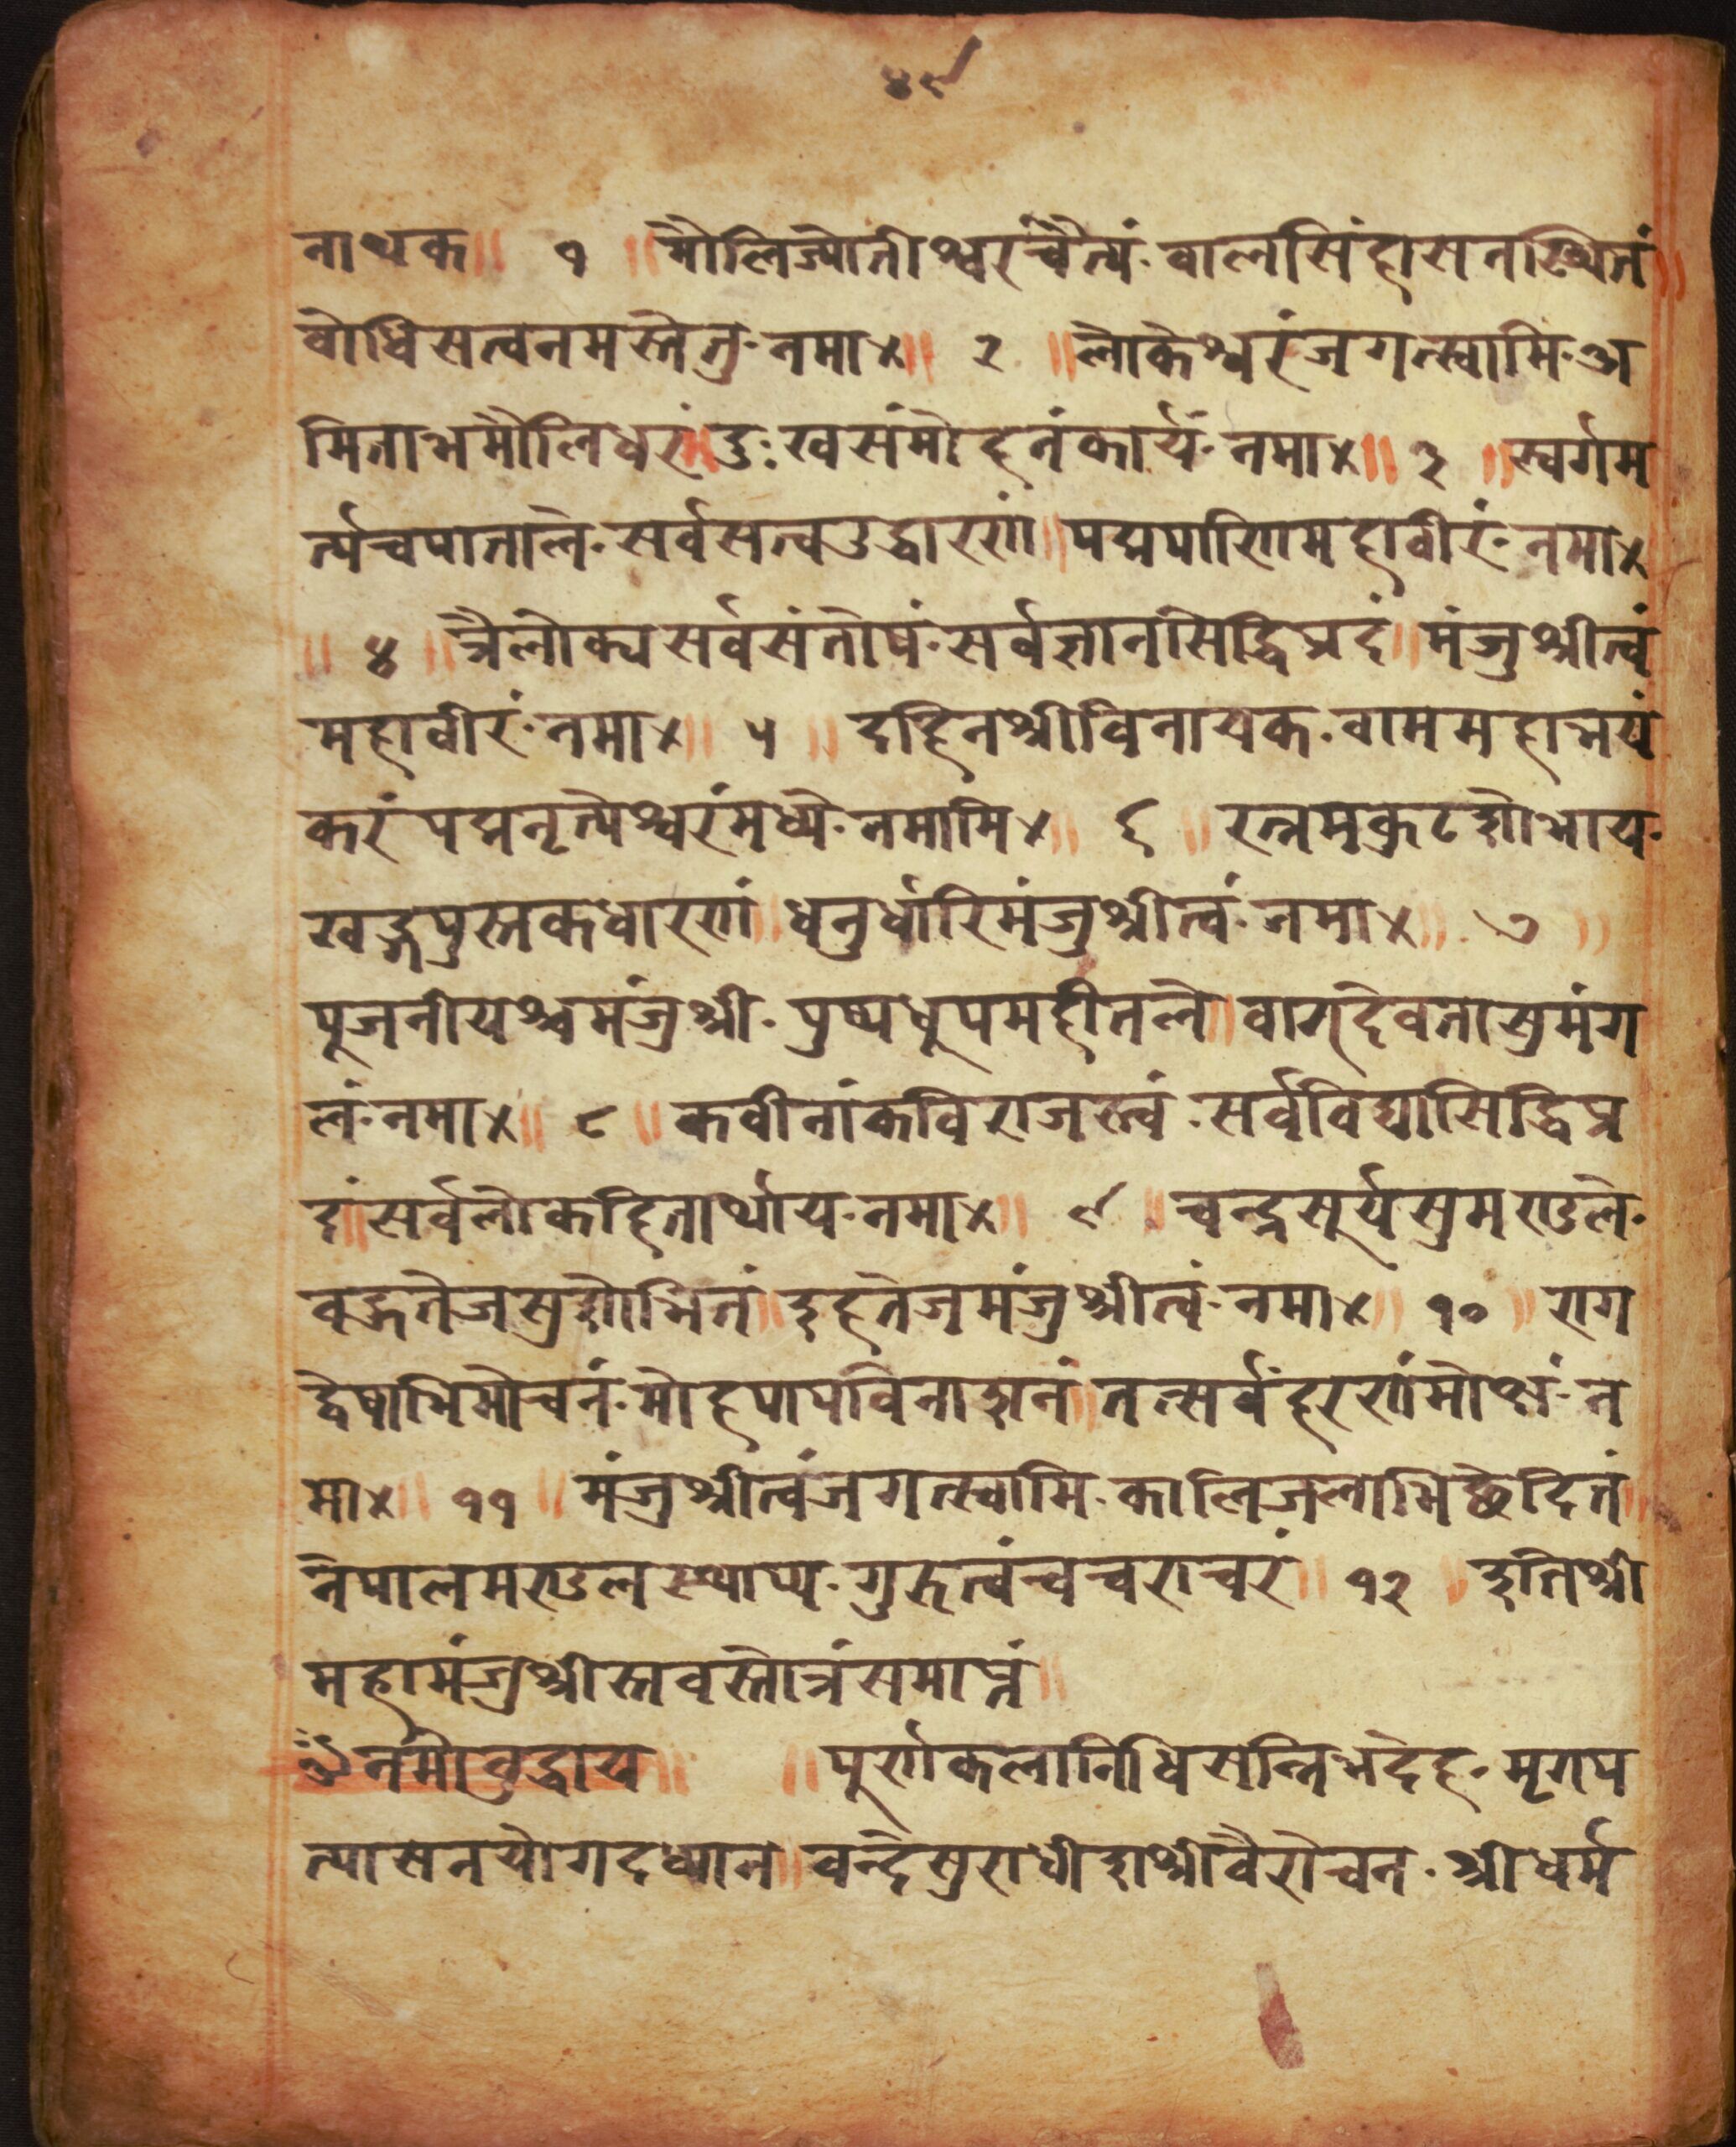 ४९
नाथक॥ १ ॥मौलिज्योतीश्वरंचैत्यं·वालसिंहासनस्थितं॥
वोधिसत्वनमस्तेतु·नमा४॥ २ ॥लोकेश्वरंजगत्स्वामि·अ
मिताभमौलिधरं॥दुःखसंमोहनंकार्यं·नमा४॥ ३ ॥स्वर्गम
र्त्यचपाताले·सर्वसत्वउद्धारणं॥पद्मपाणिमहावीरं·नमा४
॥ ४ ॥त्रैलोक्यसर्वसंतोषं·सर्वज्ञानसिद्धिप्रदं॥मंजुश्रीत्वं
महावीरं·नमा४॥ ५ ॥ दहिनश्रीविनायक·वाममहाभयं
करंपद्मनृत्येश्वरंमध्ये·नमामि४॥ ६ ॥रत्नमकुटशोभाय·
खड्गपुस्तकधारणं॥धनुर्धारिमंजुश्रीत्वं·नमा४॥ ७ ॥
पूजनीयश्चमंजुश्री·पुष्पधूपमहीतले॥वाग्देवतासुमंग
लं·नमा४॥ ८ ॥कवीनांकविराजस्त्वं·सर्वविद्यासिद्धिप्र
दं॥सर्वलोकहितार्थाय·नमा४॥ ९ ॥चन्द्रसूर्यसुमण्डले·
वह्नतेजसुशोभितं॥दहतेजमंजुश्रीत्वं·नमा४॥ १० ॥राग
द्वेषाभिमोचनं·मोहपापविनाशनं॥तत्सर्वंहरणंमोक्षं·न
मा४॥ ११ ॥मंजुश्रीत्वंजगत्स्वामि·कालिजलाभिछेदितं॥
नेपालमण्डलस्थाप्य·गुरुत्वंचचराचरं॥ १२ ॥इतिश्री
महामंजुश्रीस्तवस्तोत्रंसमाप्तं॥
ॐनमोवुद्धाय॥ ॥पूर्णकलानिधिसन्निभदेह·मृगप
त्यासनयोगदध्यान॥वन्देसुराधीशश्रीवैरोचन·श्रीधर्म